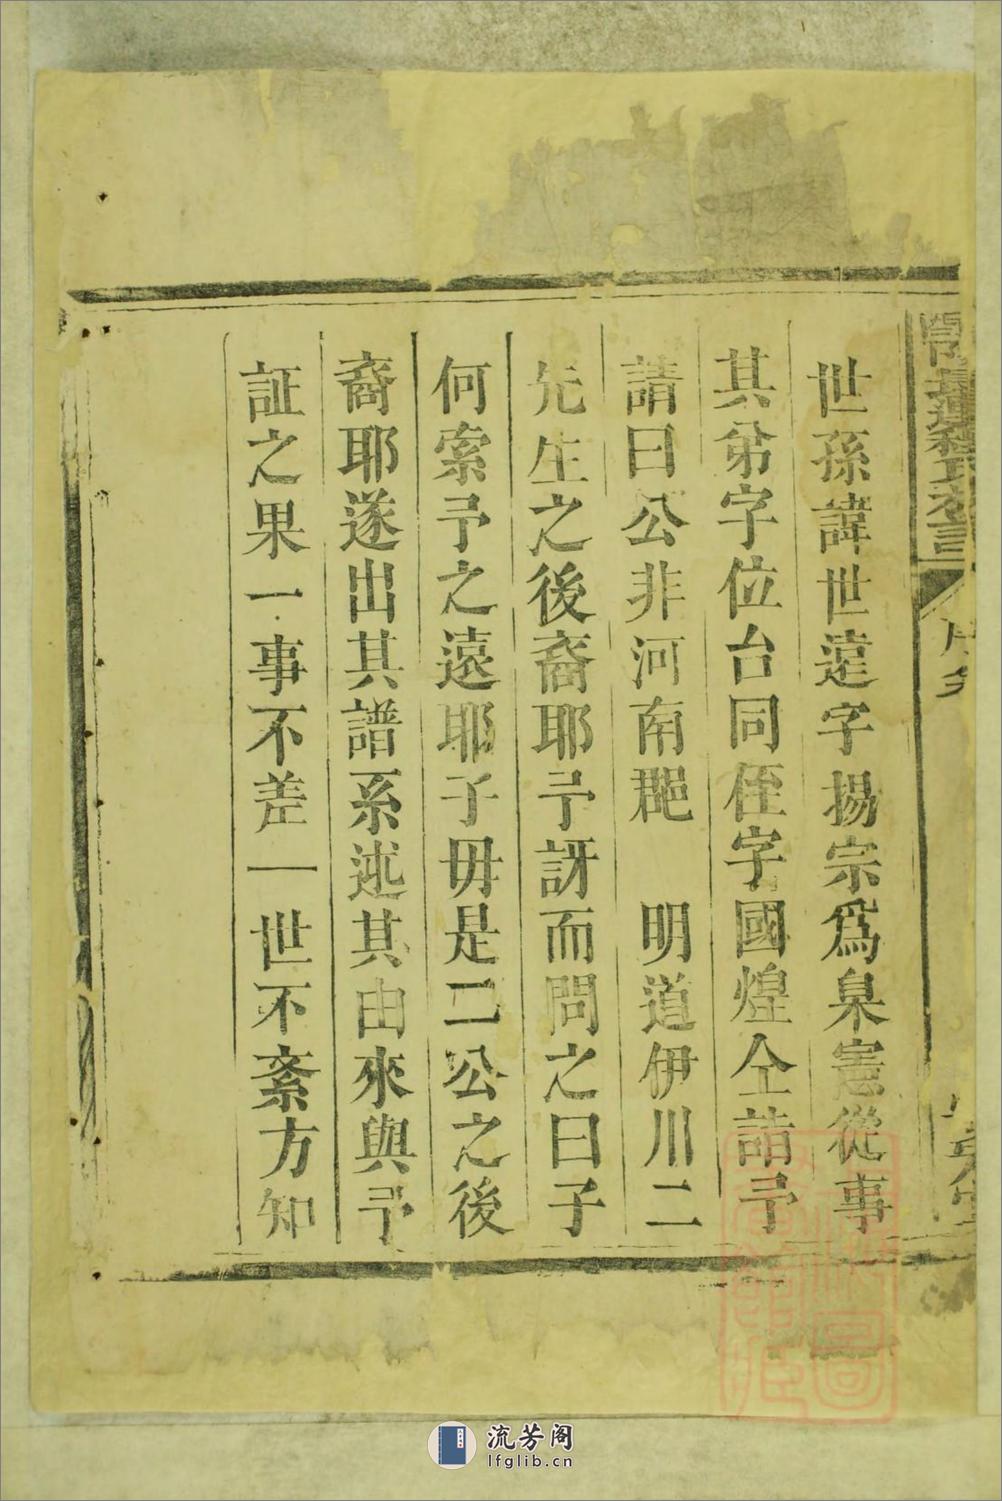 世孫諱世遠字揚宗爲臬憲從事
其弟字位台同侄字國煌仝詣予
請曰公非河南郡 明道伊川二
先生之後裔耶予訝而問之曰子
何索予之遠耶子毋是二公之後
裔耶遂出其譜系述其由來與予
証之果一事不差一世不紊方知
程氏族
序
流芳阁
lfglib.cn